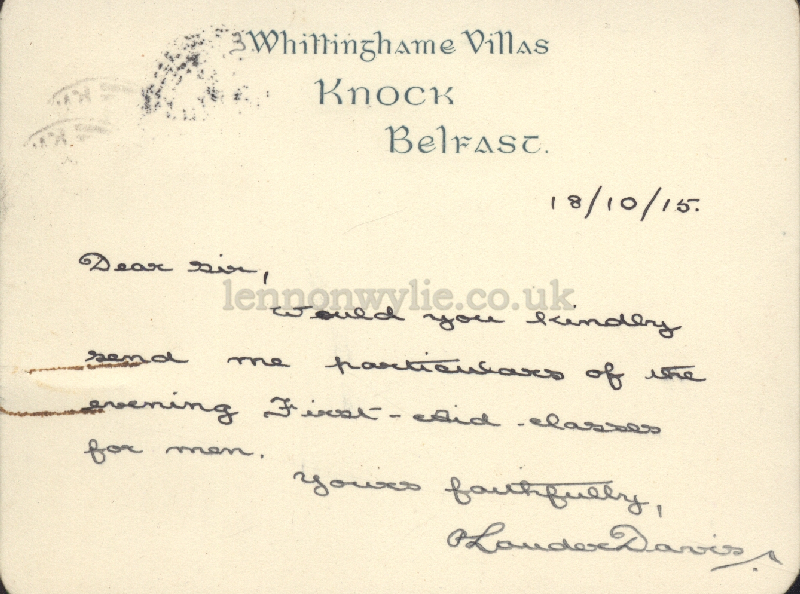 3 Whittinghame Villas
Knock
Belfast.
18/10/15.
Dear Sir,
Would you kindly
send me particulars of the
evening First-Aid classes
for men.
Yours faithfully,
Lauder Davis
lennonwylie.co.uk